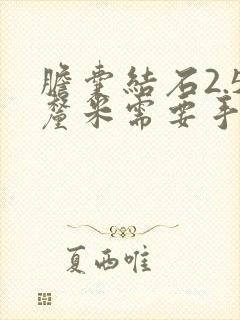 膽囊結石2.5
釐米需要手
夏西唯